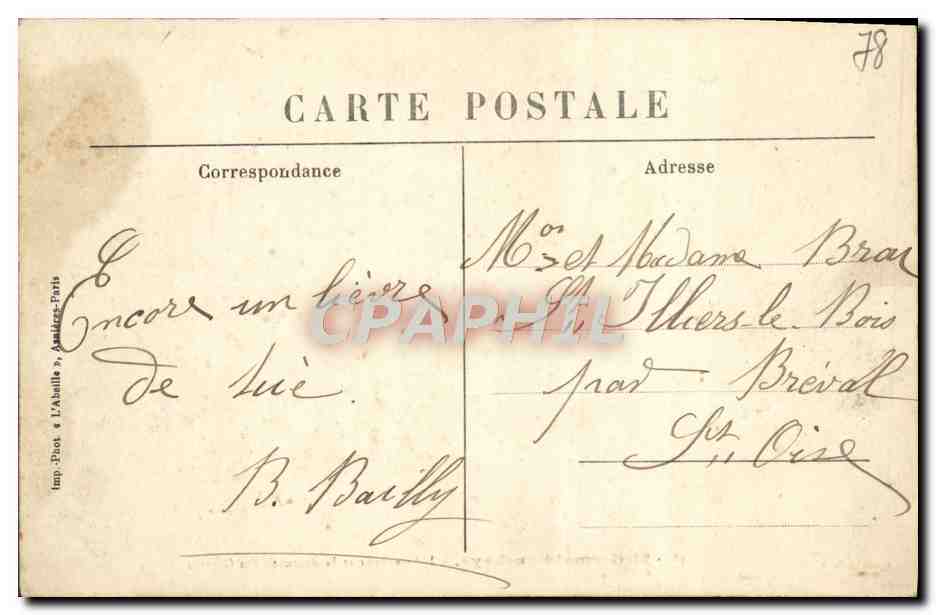 78
CARTE POSTALE
Correspondance
Adresse
Encore un lièvre
de tué.
B. Bailly
Mos et Madame
St Illiers-le-Bois
par Bréval
St Oise
Imp.-Phot. « L'Abeille », Asnières-Paris
CPAPHIL